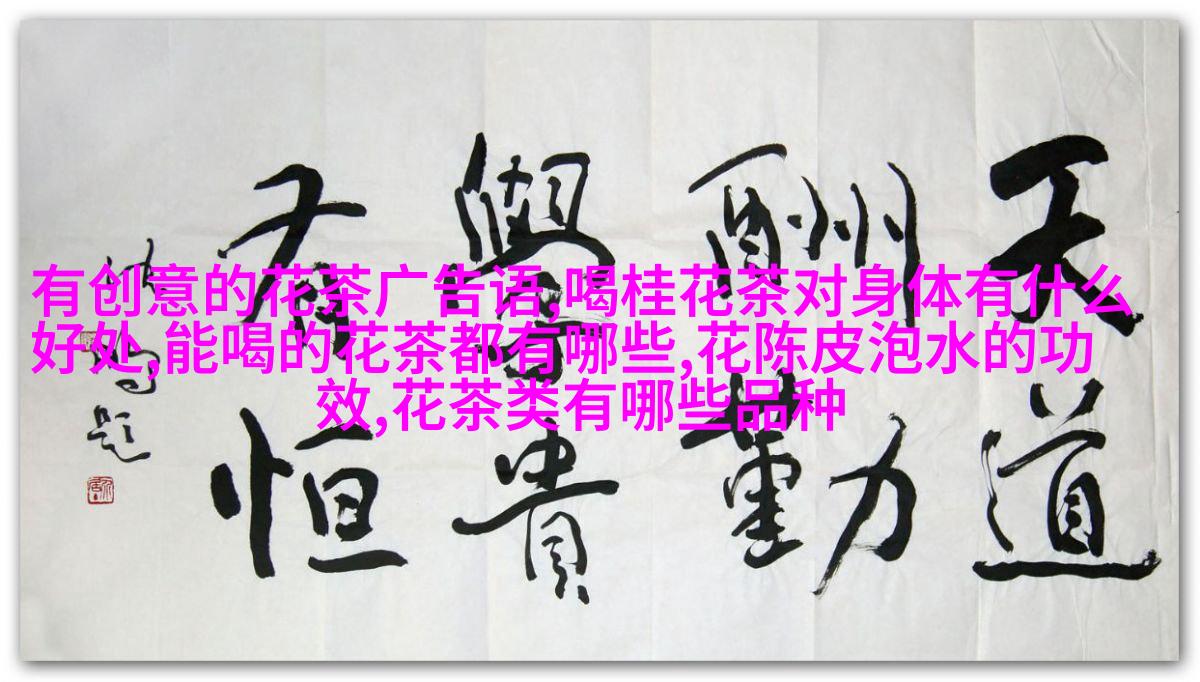 有创意的花茶广告语,喝桂花茶对身体有什么
好处,能喝的花茶都有哪些,花陈皮泡水的功
效,花茶类有哪些品种
天道
酬勤
學貴
有恒
题